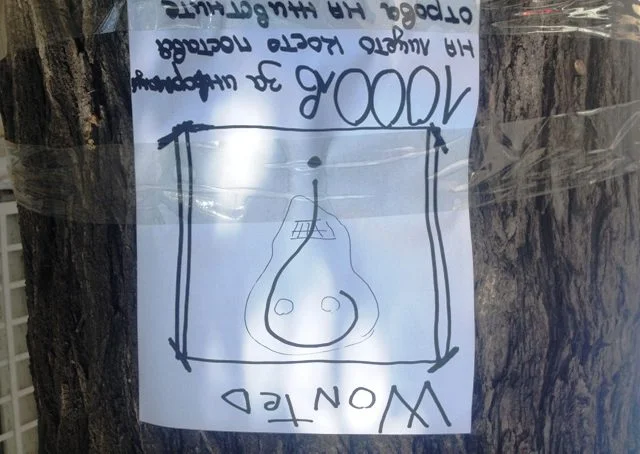 WONTED
1000лв за информация
НА ЛИЦЕТО КОЕТО ПОСТАВЯ
ОТРОВА НА ЖИВОТНИТЕ